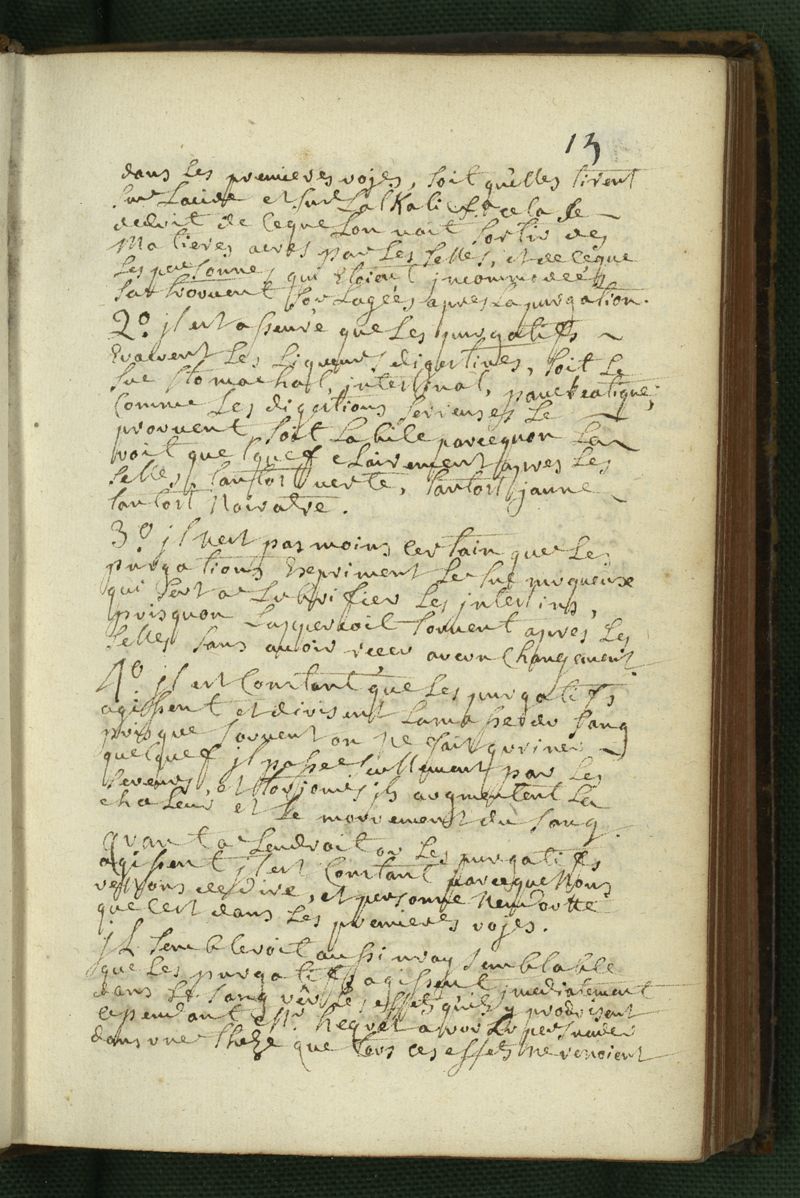 13
dans les premieres vojes, soit quelles tirent
sur lacide et sur lalkali et cela se
deduit de ceque lon voit sortir des
Matieres acres par les selles, et de ceque
les personnes qui etoient jncommodees
sat trouvent soulagées apres la purgation.
2° jl est asseuré que les purgatifs
Evacuent les liqueurs digestives, soit le
suc stomachal, jntestinal, pancreatique,
comme les digestions sereuses le
prouvent soit la bile parcequon la
voit quelquef clairement apres les
selles, tantost verte, tantost jaune
tantost Noiratre.
3° jl nest pas moins certain que les
purgations Expriment le suc muqueux
qui sert a lubrifier les jntestins,
puisquon lappercoit souvent apres les
selles sans avoir receu aucun changement.
4° jl est constant que les purgatifs
agissent et divisent la masse du sang
puisque souvent on ne fait quriner
quelquef jl passe seullement par les
sueurs, et tousjours jls augmentent la
chaleur et le mouvement du sang.
quant a lendroit ou les purgatifs
agissent jl est constant parceque Nous
venons de dire, et personne Nen doutte
que cest dans les premieres vojes.
jl sembleroit aussi vray semblable
que les purgatifs agissent jmediatement
dans le sang vû les effets quils y produisent
cependant Mr. hequet a voulu persuader
dans une These que tous ces effets ne venoient